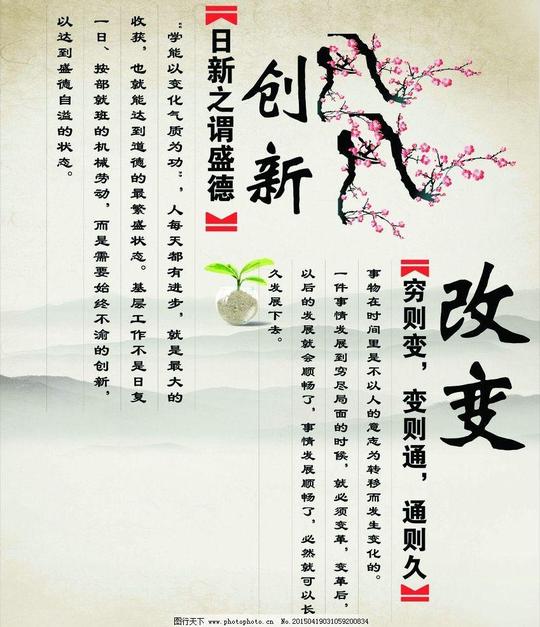 改变
【穷则变，变则通，通则久】
事物在时间里是不以人的意志为转移而发生变化的。
一件事情发展到穷尽局面的时候，就必须变革，变革后，
以后的发展就会顺畅了，事情发展顺畅了，必然就可以长
久发展下去。
创新
【日新之谓盛德】
“学能以变化气质为功”，人每天都有进步，就是最大的
收获，也就能达到道德的最繁盛状态。基层工作不是日复
一日、按部就班的机械劳动，而是需要始终不渝的创新，
以达到盛德自溢的状态。
图行天下 www.photophoto.cn No.20150419031059200834